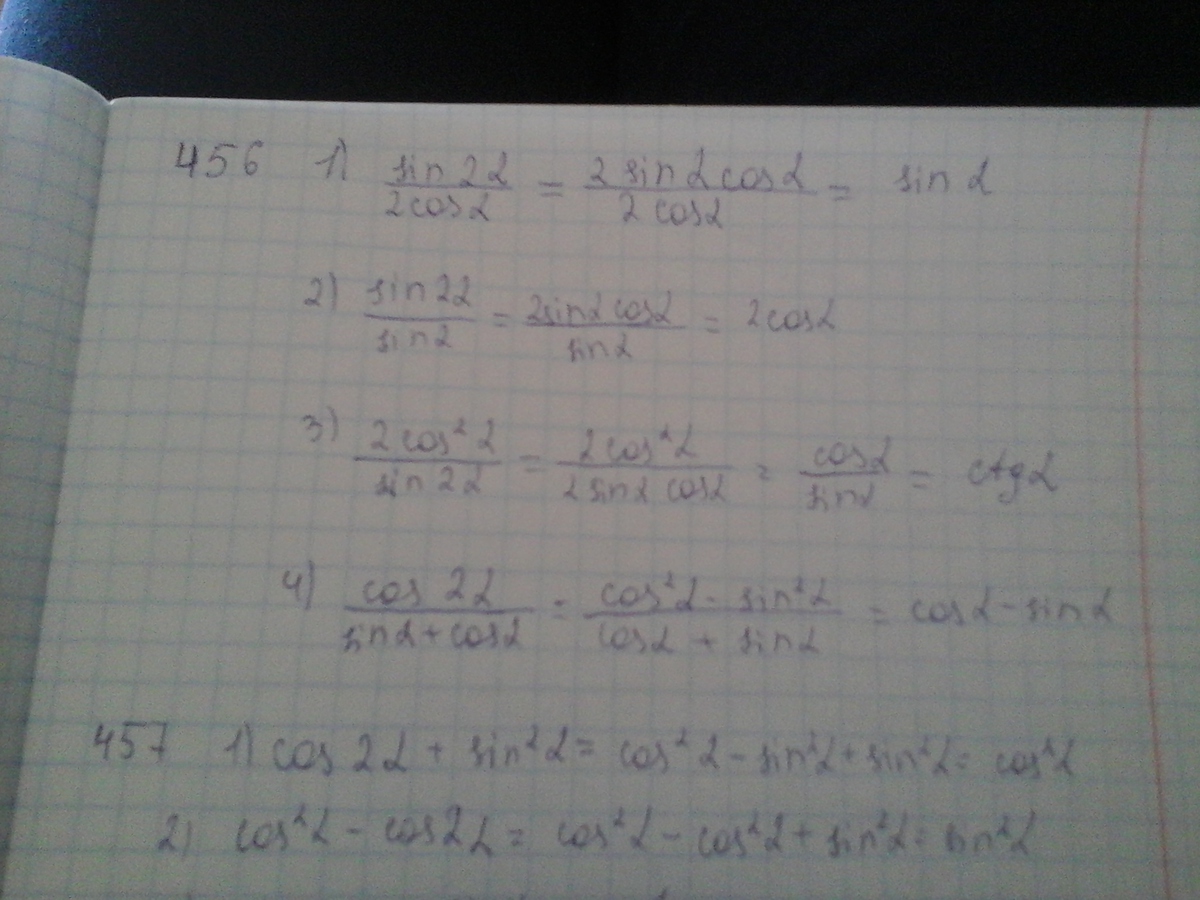 456 1) sin 2α / 2cos α = 2 sin α cos α / 2 cos α = sin α
2) sin 2α / sin α = 2sin α cos α / sin α = 2cos α
3) 2 cos² α / sin 2α = 2 cos² α / 2 sin α cos α = cos α / sin α = ctg α
4) cos 2α / sin α + cos α = cos² α - sin² α / cos α + sin α = cos α - sin α
457 1) cos 2α + sin² α = cos² α - sin² α + sin² α = cos² α
2) cos² α - cos 2α = cos² α - cos² α + sin² α = sin² α